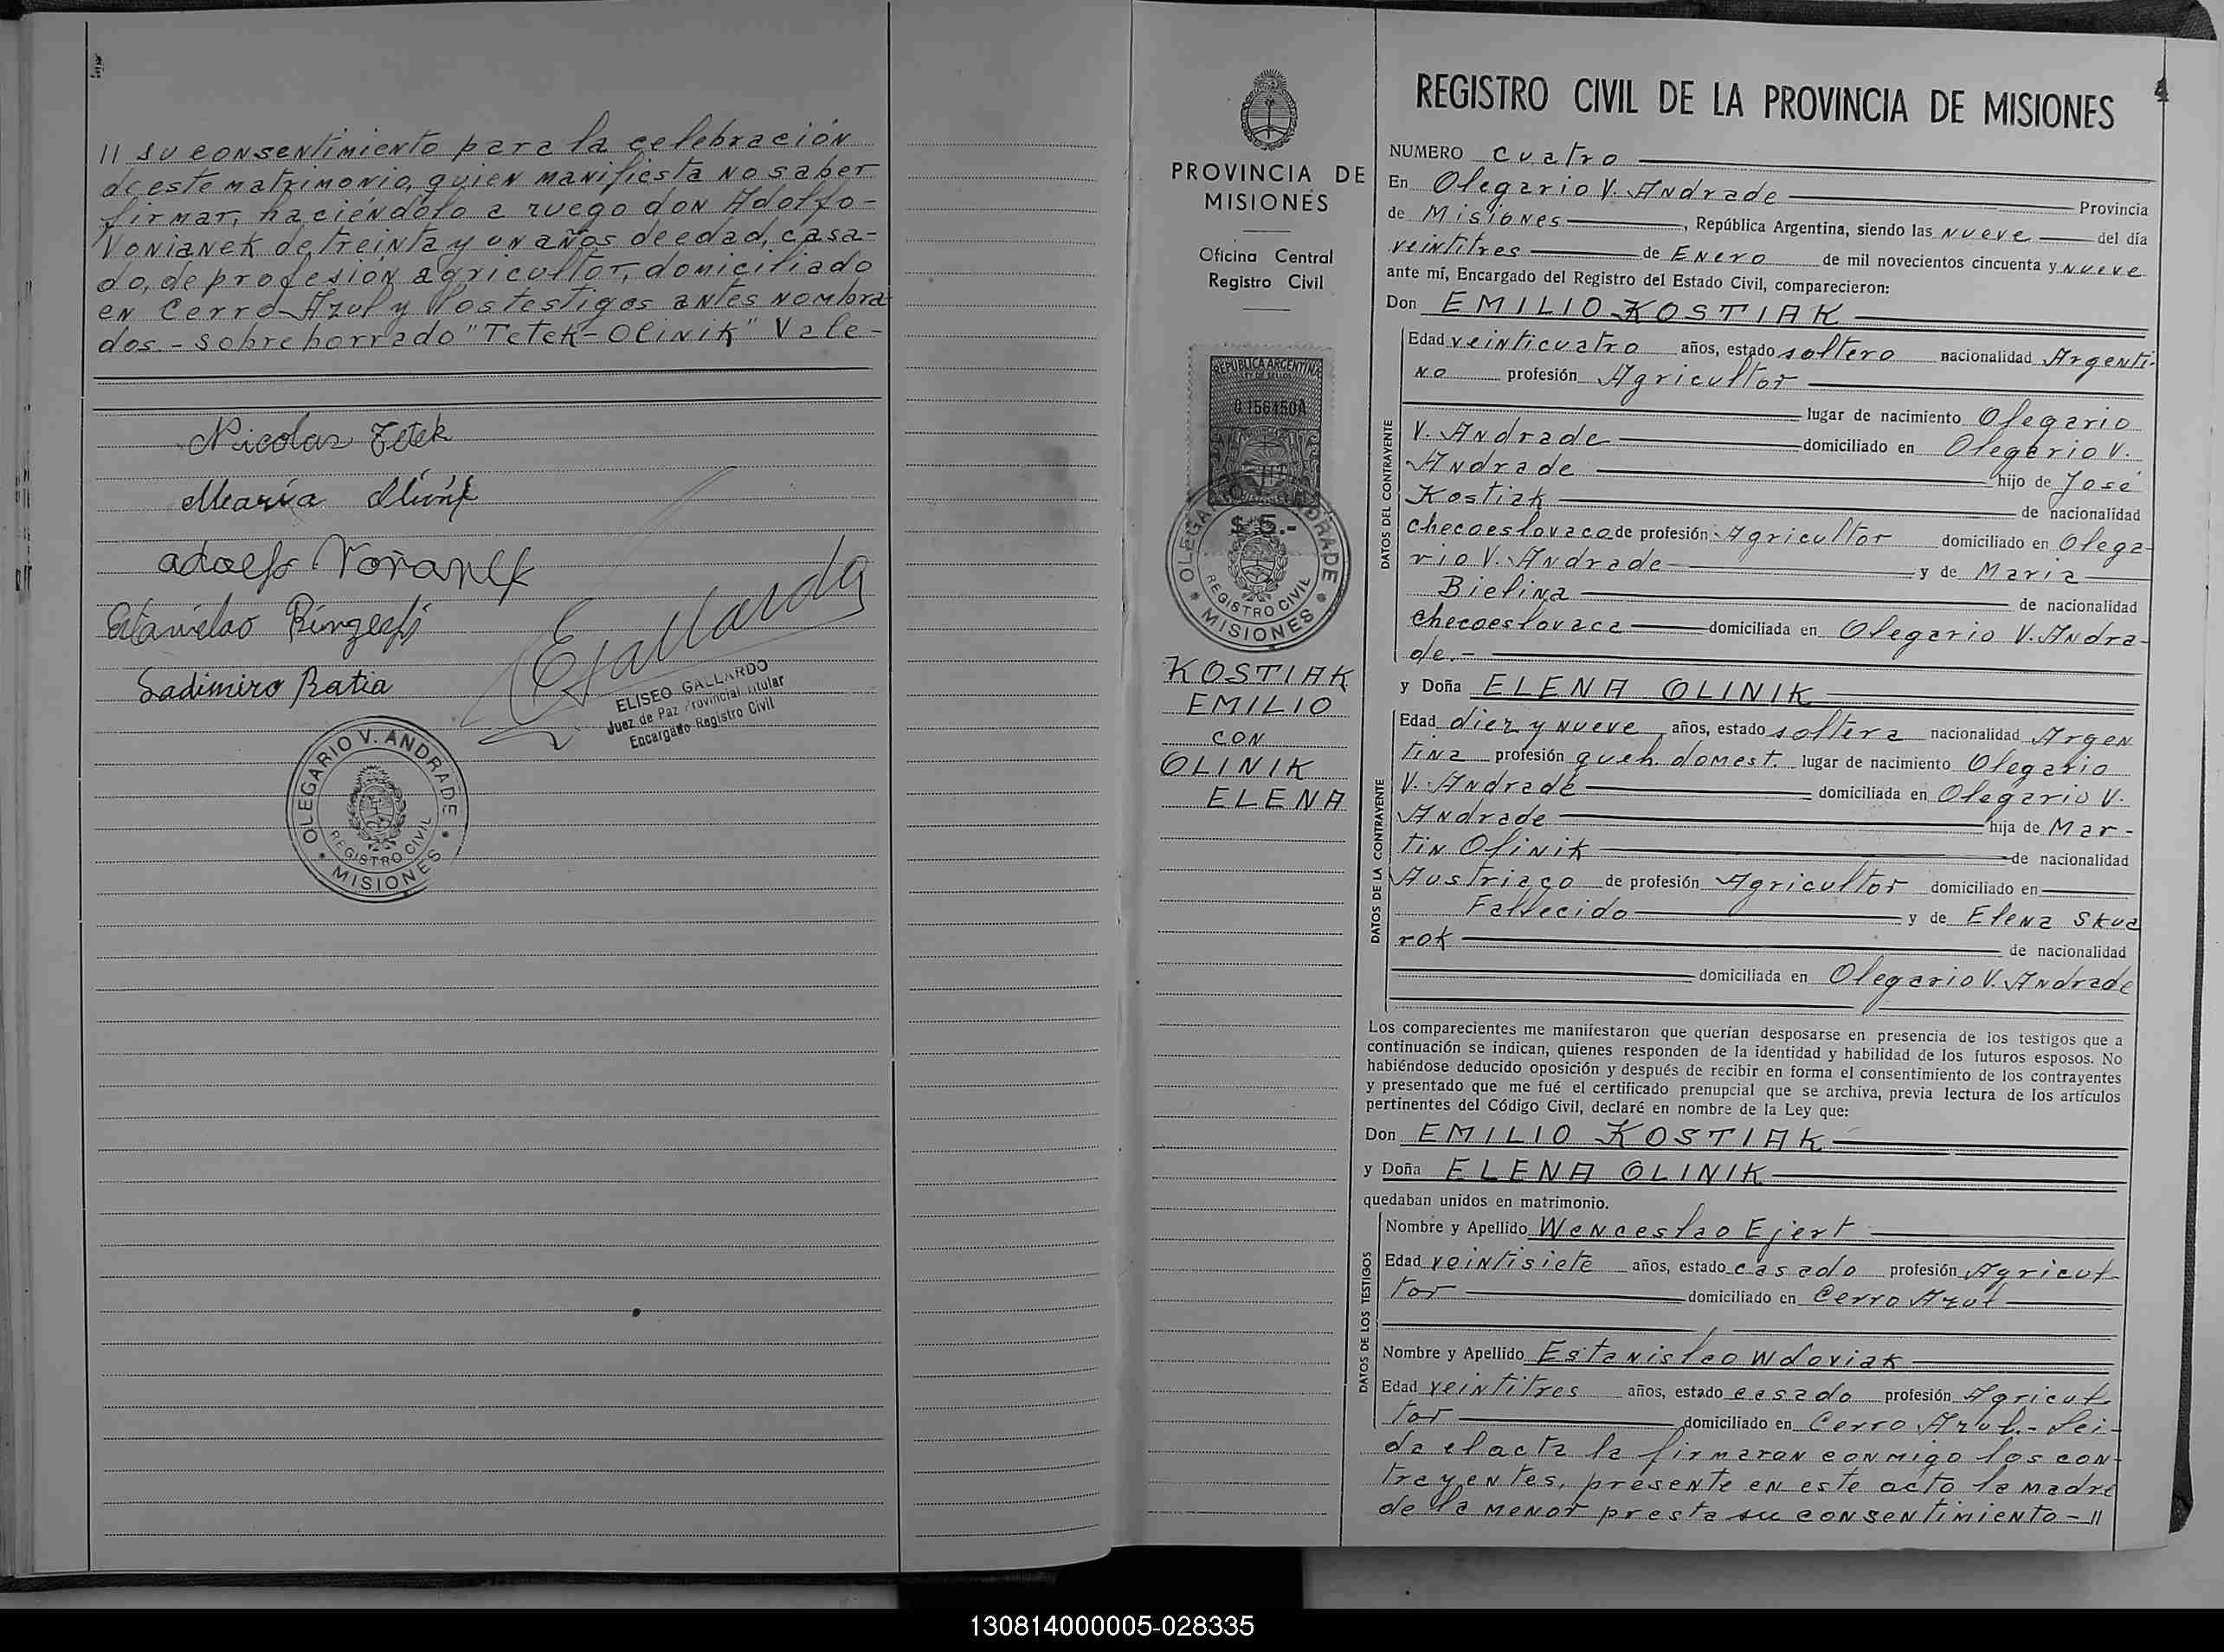 // su consentimiento para la celebración
de este matrimonio, quien manifiesta no saber
firmar, haciéndolo a ruego don Adolfo -
Vonianek de treinta y un años de edad, casa-
do, de profesión agricultor, domiciliado
en Cerro Azul y los testigos antes nombra
dos.- Sobre borrado "Tetek-Olinik" Vale-
Nicolas Tetek
Maria
Adolfo
Estanislao
Ladimiro Batia
EGallardo
ELISEO GALLARDO
Juez de Paz Provincial Titular
Encargado Registro Civil
OLEGARIO V. ANDRADE
REGISTRO CIVIL
* MISIONES *
PROVINCIA DE
MISIONES
Oficina Central
Registro Civil
REPUBLICA ARGENTINA
LEY DE SELLOS
0.156450A
$ 5.-
OLEGARIO V. ANDRADE
REGISTRO CIVIL
* MISIONES *
KOSTIAK
EMILIO
CON
OLINIK
ELENA
4
REGISTRO CIVIL DE LA PROVINCIA DE MISIONES
NUMERO Cuatro
En Olegario V. Andrade Provincia
de Misiones, República Argentina, siendo las nueve del día
veintitres de Enero de mil novecientos cincuenta y nueve
ante mí, Encargado del Registro del Estado Civil, comparecieron:
Don EMILIO KOSTIAK
DATOS DEL CONTRAYENTE
Edad veinticuatro años, estado soltero nacionalidad Argenti-
no profesión Agricultor
lugar de nacimiento Olegario
V. Andrade domiciliado en Olegario V.
Andrade hijo de José
Kostiak de nacionalidad
checoeslovaco de profesión Agricultor domiciliado en Olega-
rio V. Andrade y de Maria
Bielina de nacionalidad
checoeslovaca domiciliada en Olegario V. Andra-
de.-
y Doña ELENA OLINIK
DATOS DE LA CONTRAYENTE
Edad diez y nueve años, estado soltera nacionalidad Argen
tina profesión queh. domest. lugar de nacimiento Olegario
V. Andrade domiciliada en Olegario V.
Andrade hija de Mar-
tin Olinik de nacionalidad
Austriaco de profesión Agricultor domiciliado en
Fallecido y de Elena Skua
rok de nacionalidad
domiciliada en Olegario V. Andrade
Los comparecientes me manifestaron que querían desposarse en presencia de los testigos que a
continuación se indican, quienes responden de la identidad y habilidad de los futuros esposos. No
habiéndose deducido oposición y después de recibir en forma el consentimiento de los contrayentes
y presentado que me fué el certificado prenupcial que se archiva, previa lectura de los artículos
pertinentes del Código Civil, declaré en nombre de la Ley que:
Don EMILIO KOSTIAK
y Doña ELENA OLINIK
quedaban unidos en matrimonio.
DATOS DE LOS TESTIGOS
Nombre y Apellido Wenceslao Ejert
Edad veintisiete años, estado casado profesión Agricul-
tor domiciliado en Cerro Azul
Nombre y Apellido Estanislao Wdoviak
Edad veintitres años, estado casado profesión Agricul
tor domiciliado en Cerro Azul.- Lei-
da el acta la firmaron conmigo los con-
trayentes, presente en este acto la madre
de la menor presta su consentimiento - //
130814000005-028335